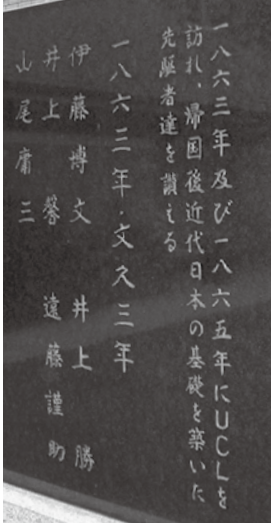 一八六三年及び一八六五年にUCLを
訪れ、帰国後近代日本の基礎を築いた
先駆者達を讃える
一八六三年・文久三年
伊藤博文 井上勝
井上馨 遠藤謹助
山尾庸三